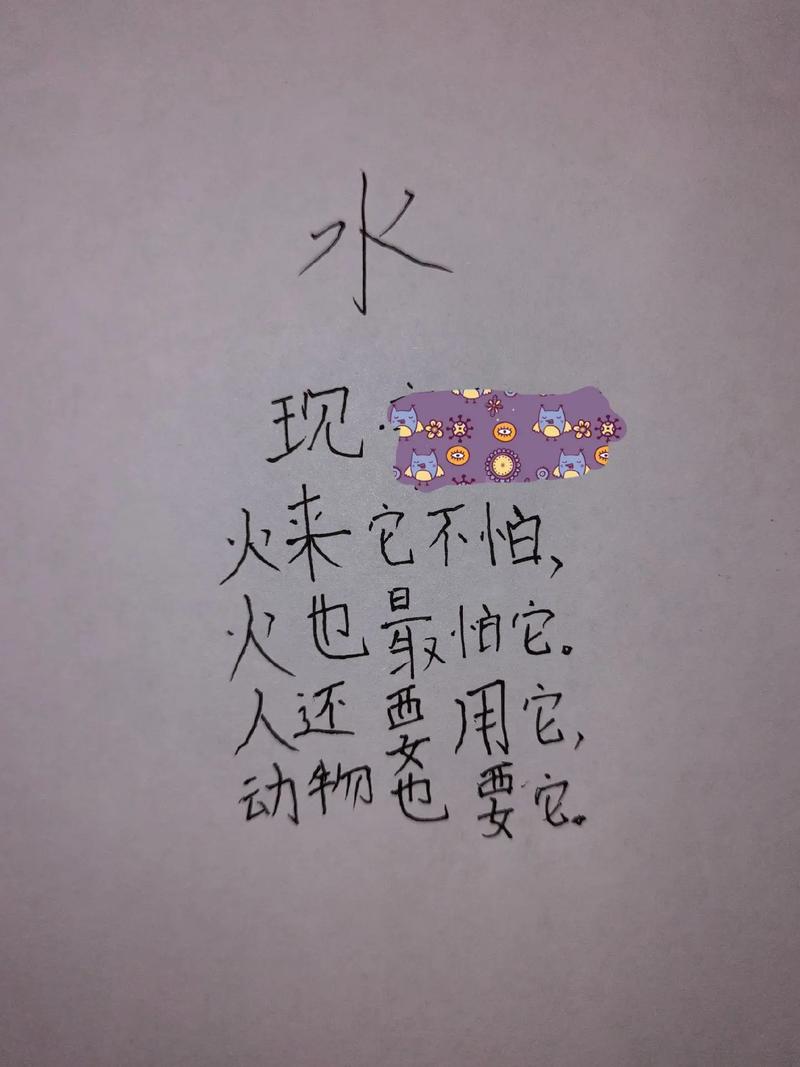 水
现
火来它不怕，
火也最怕它。
人还要用它，
动物也要它。